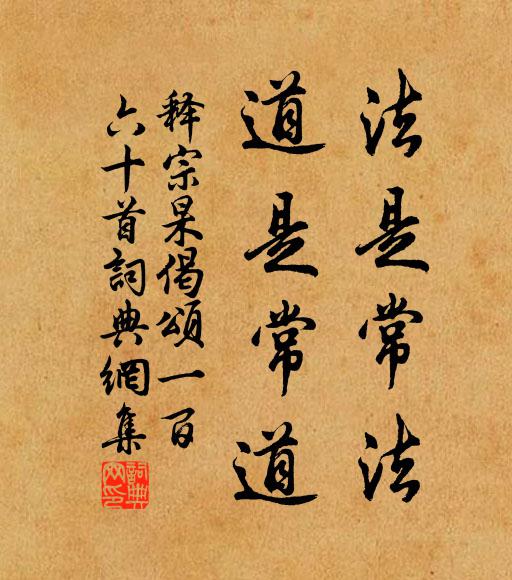 法是常法
道是常道
释宗杲偈頌一百
六十首詞典網集
詞典網印